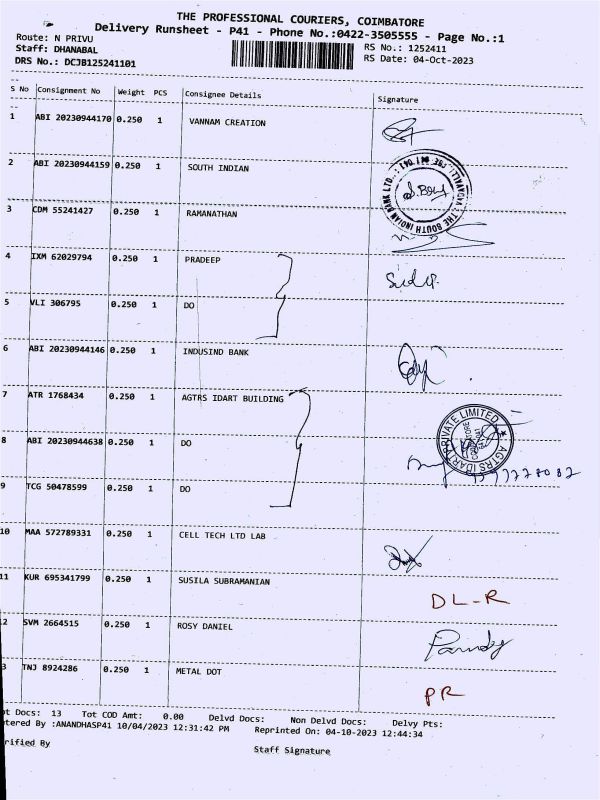 THE PROFESSIONAL COURIERS, COIMBATORE
Delivery Runsheet - P41 - Phone No.:0422-3505555 - Page No.:1
Route: N PRIVU RS No.: 1252411
Staff: DHANABAL RS Date: 04-Oct-2023
DRS No.: DCJB125241101
S No Consignment No Weight PCS Consignee Details Signature
1 ABI 20230944170 0.250 1 VANNAM CREATION
2 ABI 20230944159 0.250 1 SOUTH INDIAN
THE SOUTH INDIAN BANK LTD.
3 CDM 55241427 0.250 1 RAMANATHAN
4 IXM 62029794 0.250 1 PRADEEP
5 VLI 306795 0.250 1 DO
6 ABI 20230944146 0.250 1 INDUSIND BANK
7 ATR 1768434 0.250 1 AGTRS IDART BUILDING
AGTRS IDART PRIVATE LIMITED
8 ABI 20230944638 0.250 1 DO
9 TCG 50478599 0.250 1 DO
10 MAA 572789331 0.250 1 CELL TECH LTD LAB
11 KUR 695341799 0.250 1 SUSILA SUBRAMANIAN DL-R
2 SVM 2664515 0.250 1 ROSY DANIEL
3 TNJ 8924286 0.250 1 METAL DOT PR
ot Docs: 13 Tot COD Amt: 0.00 Delvd Docs: Non Delvd Docs: Delvy Pts:
ntered By :ANANDHASP41 10/04/2023 12:31:42 PM Reprinted On: 04-10-2023 12:44:34
rified By Staff Signature